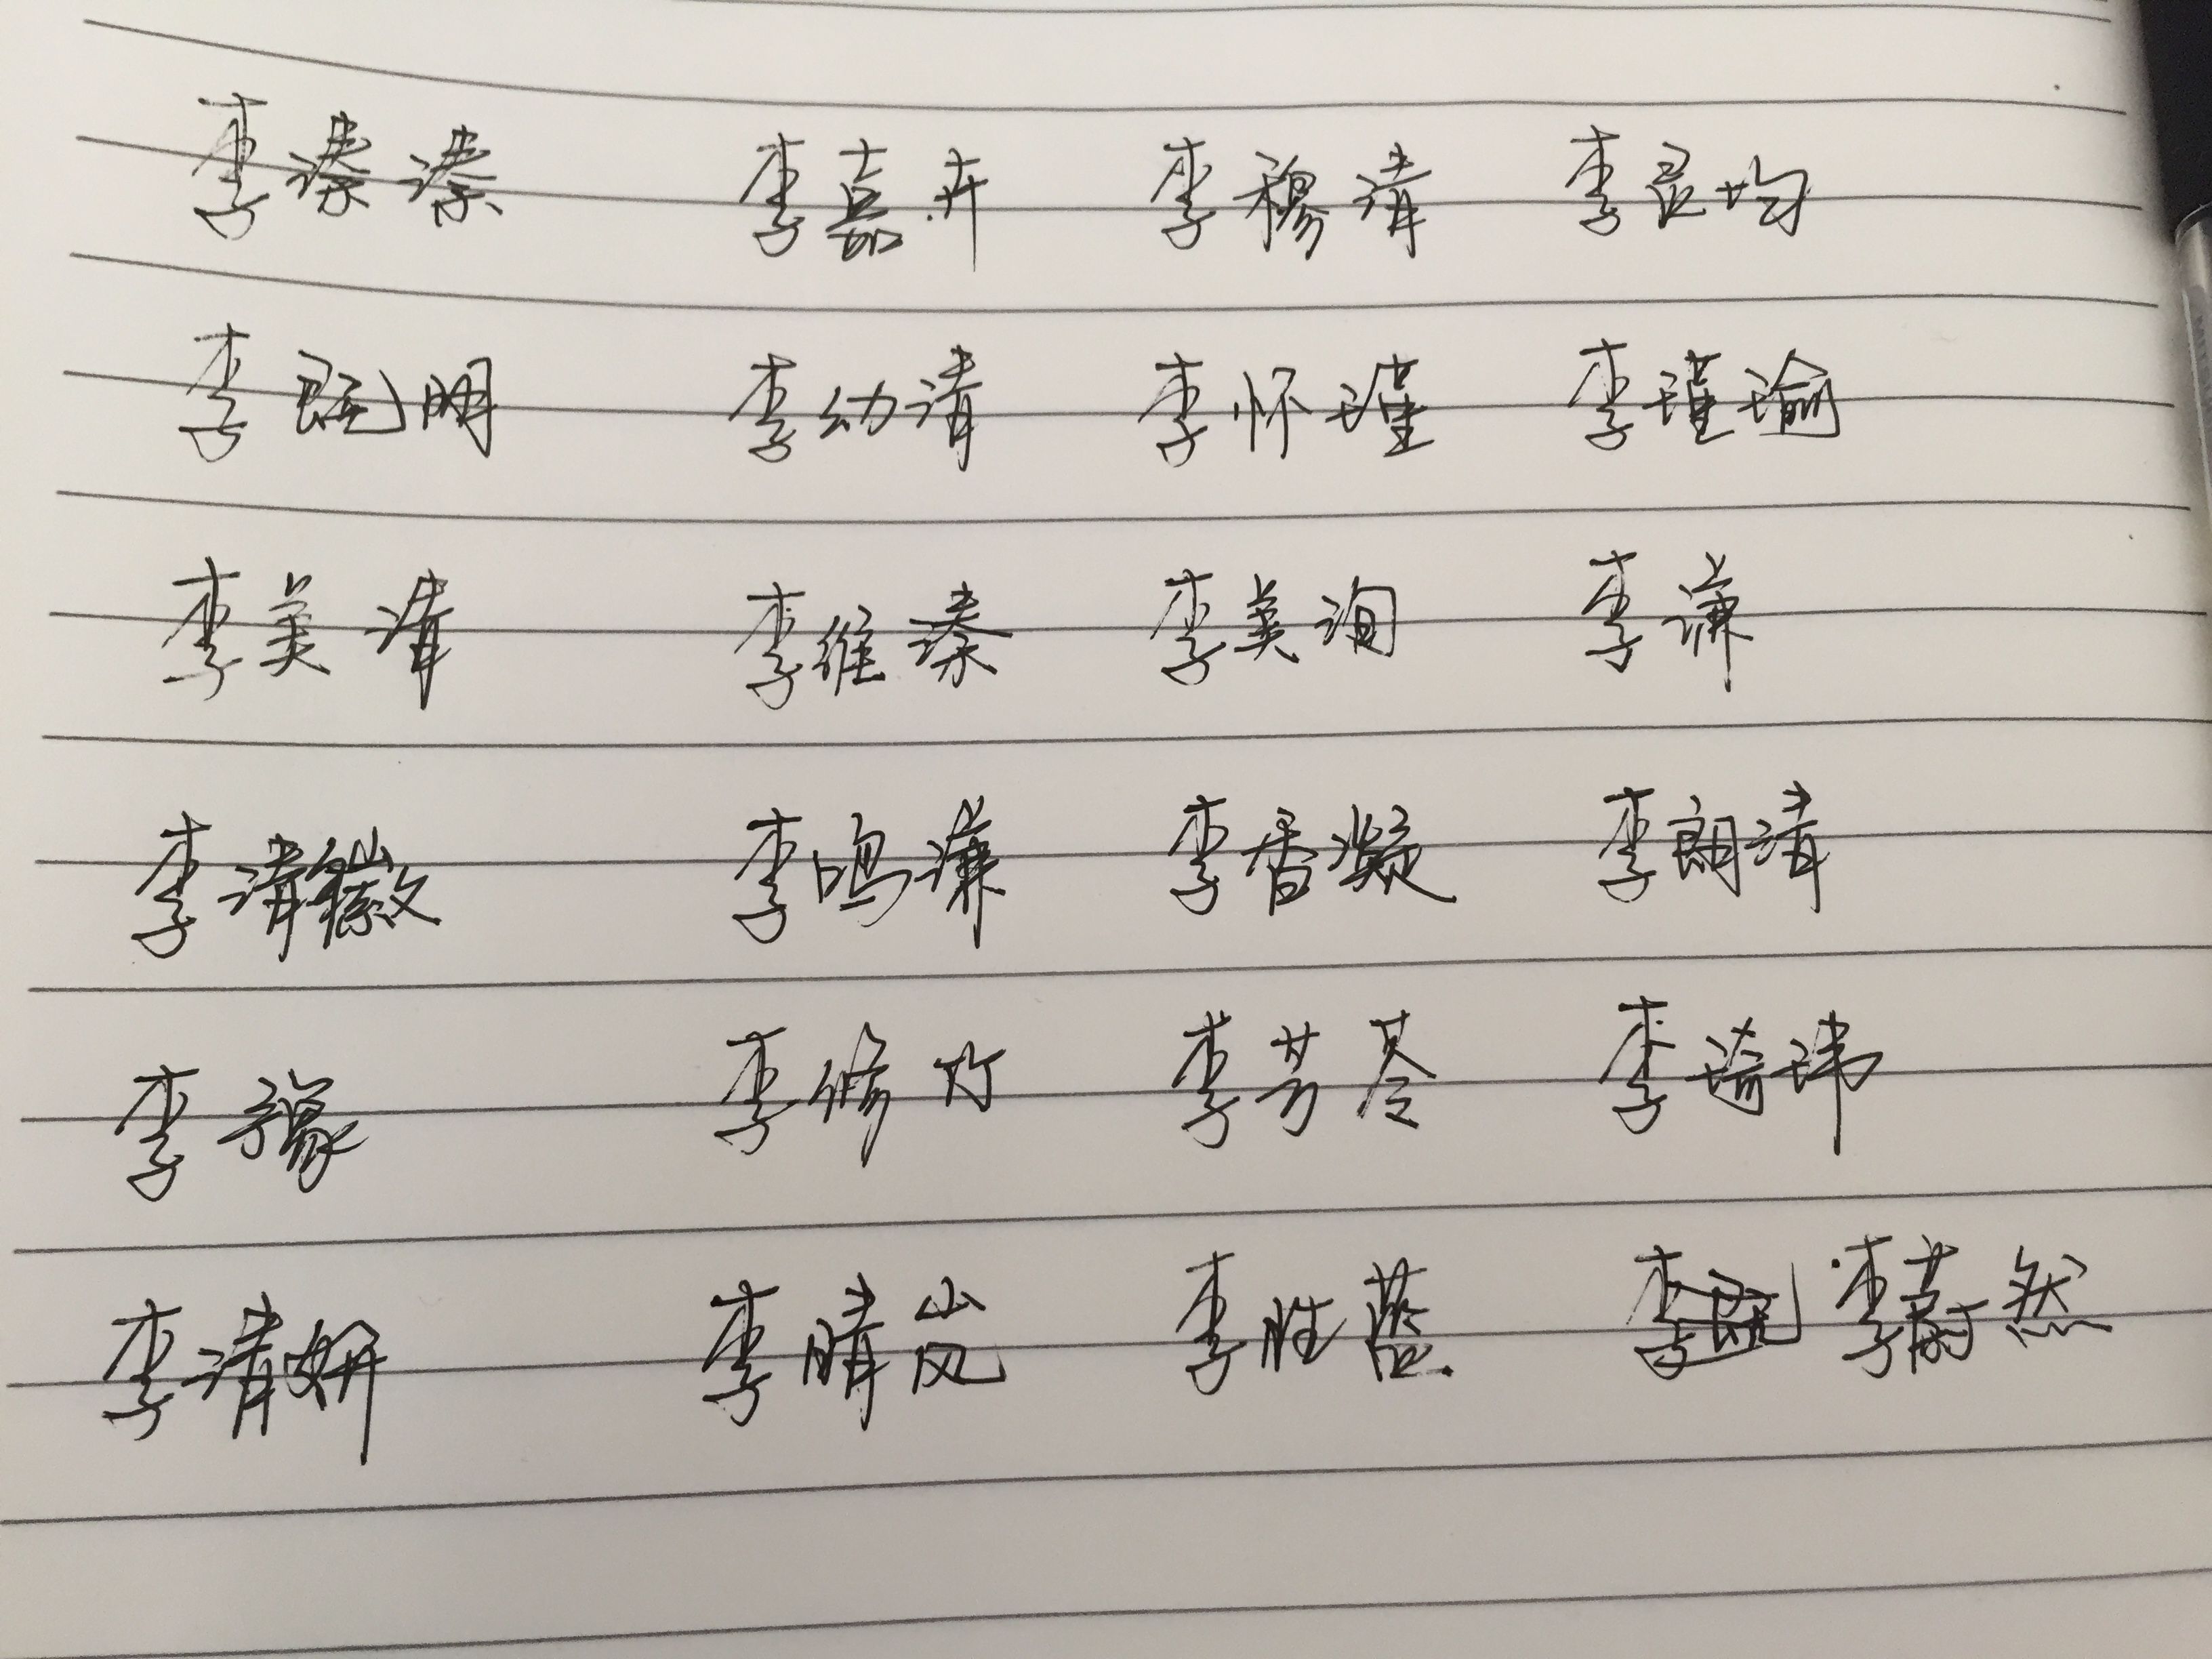 李溱溱 李嘉卉 李穆清 李灵均
李既明 李幼清 李怀瑾 李瑾瑜
李美清 李维溱 李美洵 李谦
李清徽 李鸣谦 李香凝 李朗清
李豫 李修竹 李芳苓 李琦玮
李清妍 李晴岚 李胜蓝 李蔚然